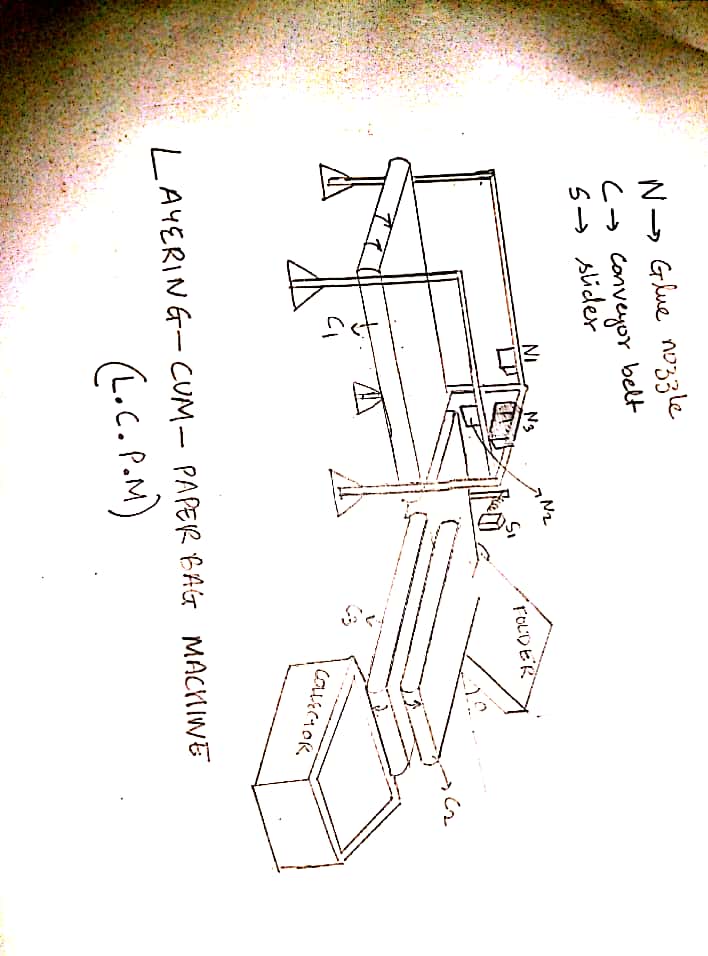 N → Glue nozzle
C → conveyor belt
S → slider
N1
N3
N2
S1
FOLDER
C2
C1
C3
COLLECTOR
LAYERING-CUM-PAPER BAG MACHINE
(L.C.P.M)